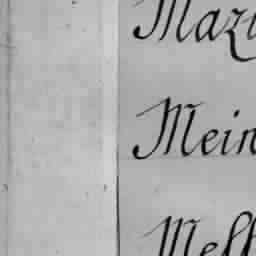 Mazu
Mein
Mell